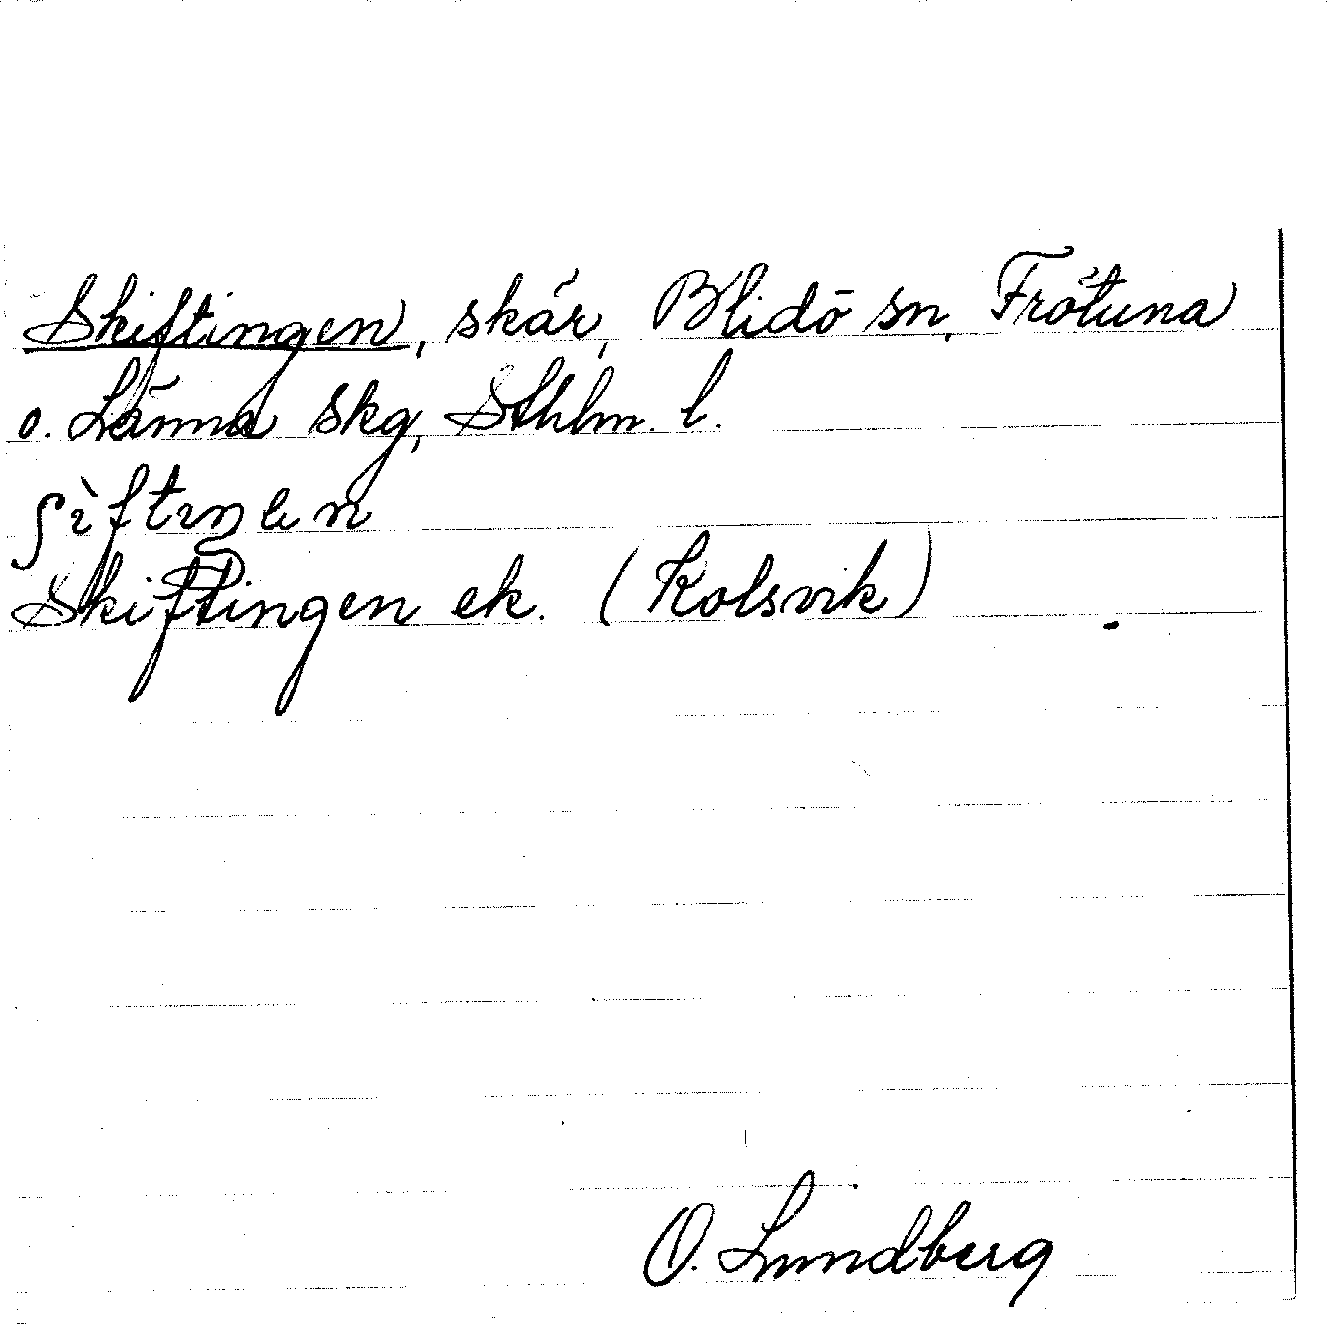 Skiftingen, skär, Blidö sn, Frötuna
o. Länna skg, Sthlm. l.
ʃìftiŋen
Skiftingen ek. (Kolsvik)
O. Lundberg